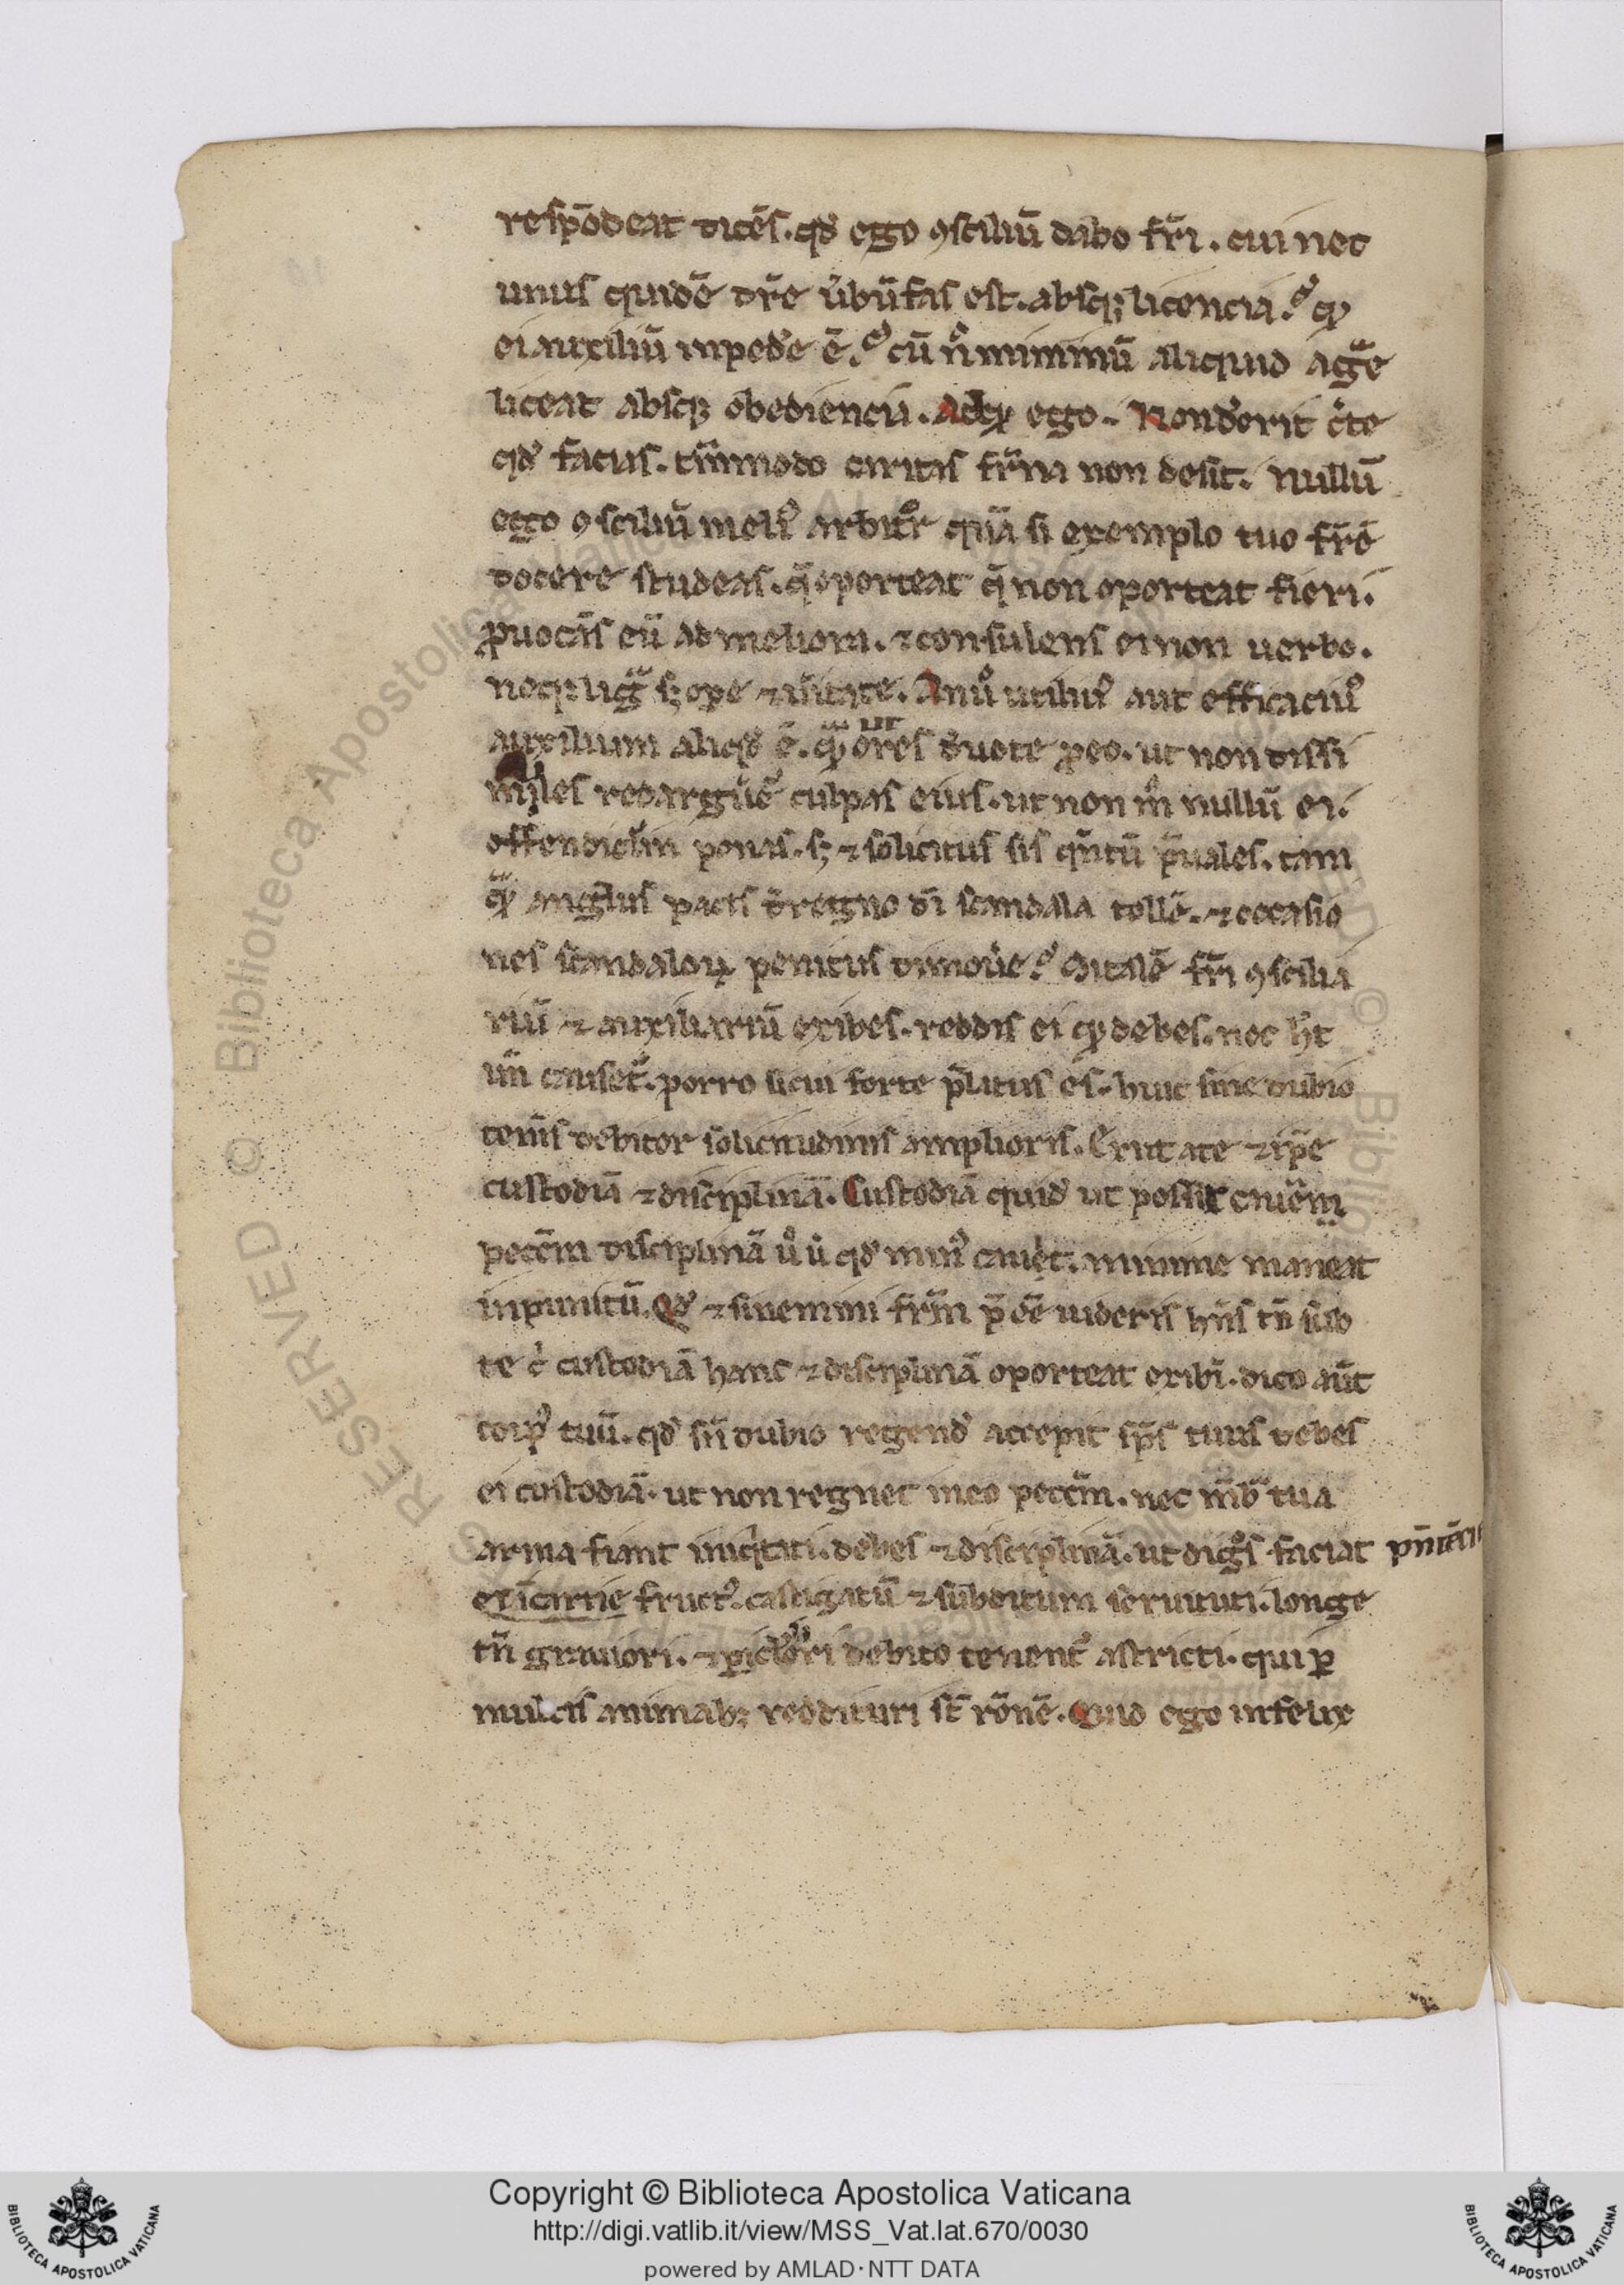 respōdeat dicēs. qd̕ ego ꝯsciliū dabo fr̄i. cui nec
unus quidē dr̄e ūbū fas est. absq; licencia? qd̕
ei auxiliū inpēde̕ ē? cū n̕ minimū aliquid ag̕e
liceat absq; obediencia. Ad q̕ ego. Non d̕erit c̕te
qd̕ facias. tm̄modo caritas fr̄na non desit. nullū
ego ꝯsciliū meli᷒ arbitr̕ qua̅ si exemplo tuo fr̄ē
docere studeas. q̄ oporteat q̄ non oporteat fieri.
ꝓuocās eū ad meliora. ⁊ consulens ei non uerbo.
neq; ligua̅ s; ope ⁊ u̕itate. An u̕o utiliu᷒ aut efficaciu᷒
auxilium aliqd̕ ē. qua̅ ut ores d̕uote ꝓ eo. ut non dissi
mules redargue̕ culpas eius. ut non m̊ nullū ei.
offendiclm̄ ponas. s; ⁊ sollicitus sis qn̄tū p̄uales. tam
qua̅ angl̕us pacis d̕ regno dī scandala tolle̕. ⁊ occasio
nes scandaloꝝ penitus dimoue̕? Si talē fr̄i ꝯscilia
riū ⁊ auxiliariū exibes. reddis ei qd̕ debes. nec h̕t
un̄ causet̕. porro si cui forte p̄latus es. huic sine dubio
tenis̕ debitor sollicitudinis amplioris. Exiit a te ⁊ ip̄e
custodiā ⁊ disciplinā. Custodiā quid̕ ut possit caue̕
pccm̄ disciplinā u̕o ū qd̕ min᷒ cauet. minime maneat
inpunitū. Qd̕ ⁊ si nemini fr̄m p̄ee̅ uideris hn̄s tn̄ sub
te c̕ custodiā hanc ⁊ disciplinā oporteat exibī. dico aūt
corp᷒ tuū. qd̕ sn̄ dubio regend̕ accepit sp̄s tuus debes
ei custodiā. ut non regnet in eo pccm̄. nec m̄bra tua
arma fiant iniq̕tati. debes ⁊ disciplinā. ut dig̊s faciat pn̄iēcie
fruct᷒. castigatū ⁊ subditum seruituti. longe
tn̄ grauiori. ⁊ p̱iclōri debito tenent̕ astricti. qui ꝓ
multis animab; reddituri st̄ rōnē. Quid ego infelix
Copyright © Biblioteca Apostolica Vaticana
http://digi.vatlib.it/view/MSS_Vat.lat.670/0030
powered by AMLAD·NTT DATA
BIBLIOTECA APOSTOLICA VATICANA
BIBLIOTECA APOSTOLICA VATICANA